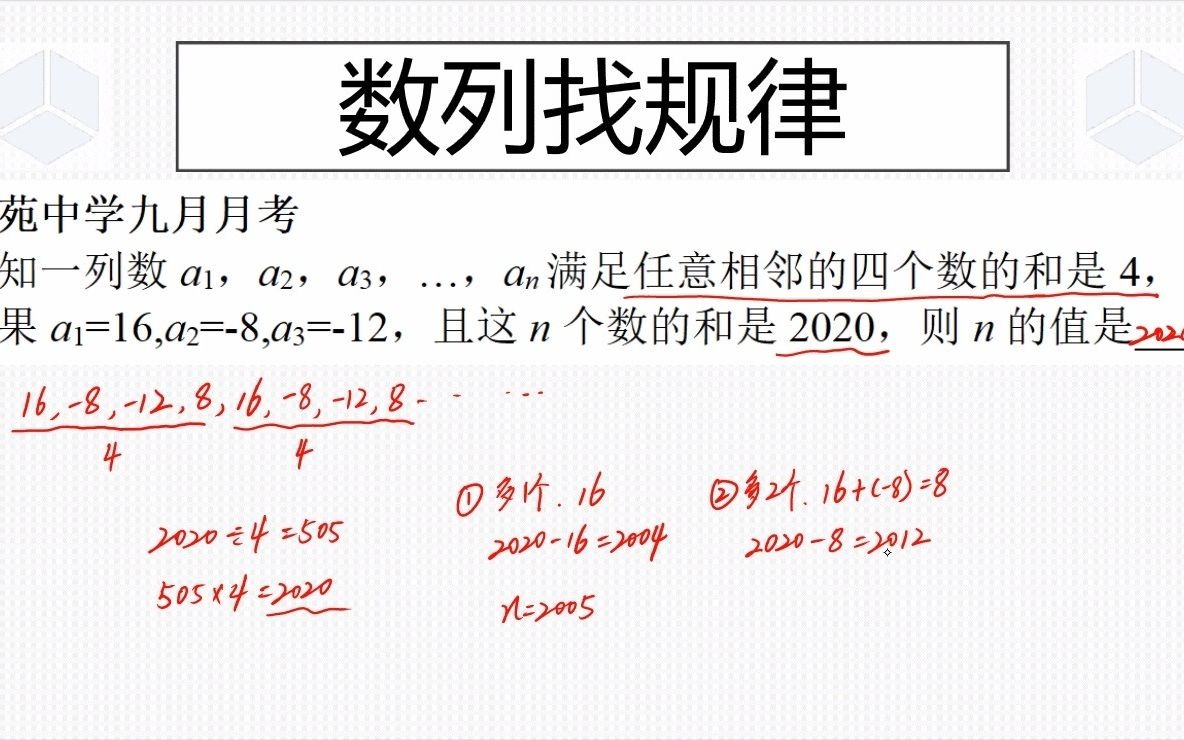 数列找规律
苑中学九月月考
知一列数 a1，a2，a3，…，an 满足任意相邻的四个数的和是 4，
果 a1=16,a2=-8,a3=-12，且这 n 个数的和是 2020，则 n 的值是2020
16,-8,-12,8,16,-8,-12,8- - ...
4 4
①多1个.16 ②多2个.16+(-8)=8
2020÷4=505 2020-16=2004 2020-8=2012
505×4=2020 n=2005